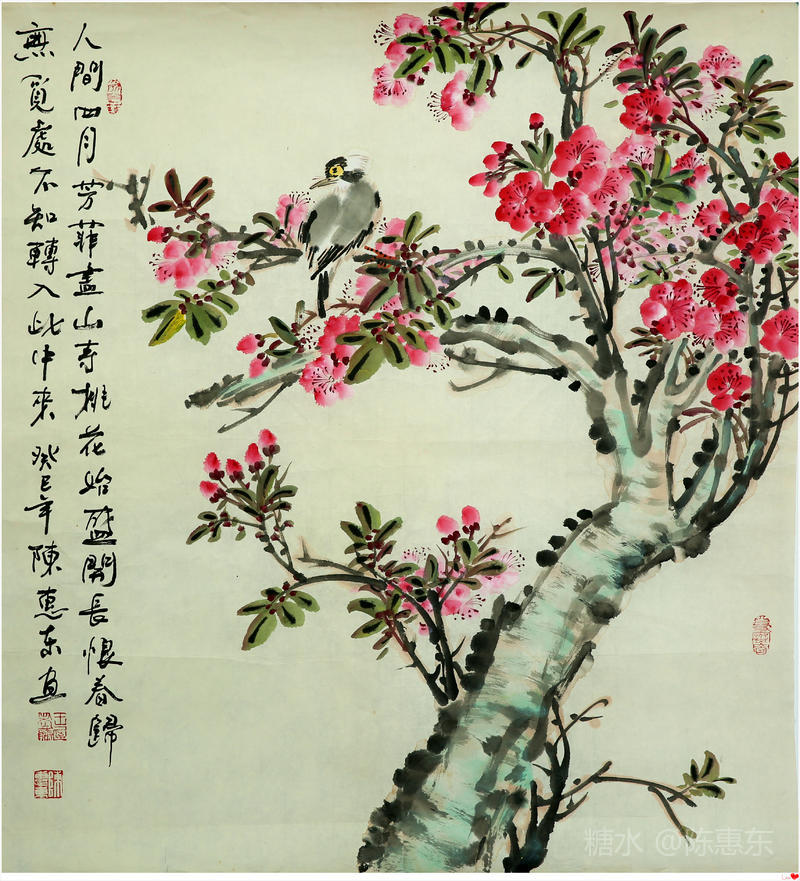 人間四月芳菲盡山寺桃花始盛開長恨春歸
無覓處不知轉入此中來 癸巳年 陳惠东画
糖水 @陈惠东